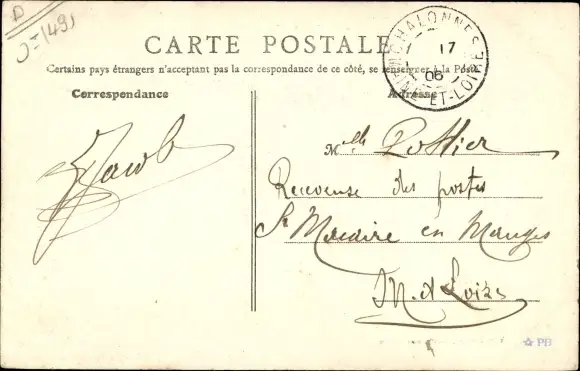 D
CARTE POSTALE
Certains pays étrangers n'acceptant pas la correspondance de ce côté, se renseigner à la Poste
Correspondance
Adresse
CHALONNES
17
06
ET-LOIRE
Jacob
Mlle Pottier
Receveuse des postes
St Macaire en Mauges
M. et Loire
PB